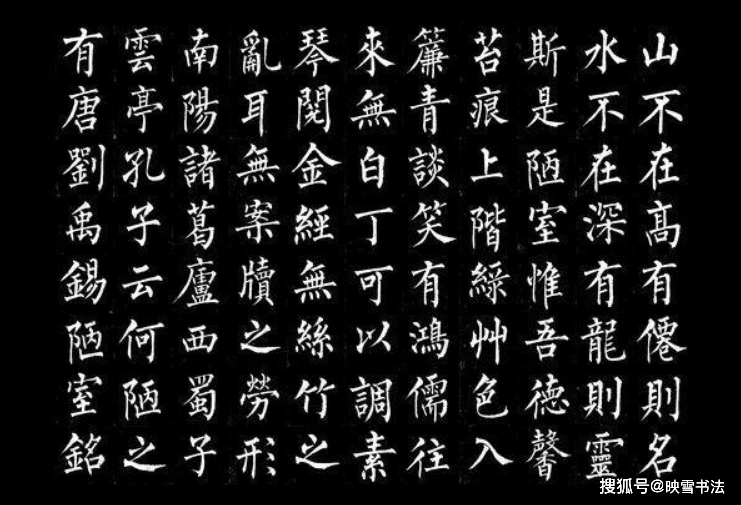 山不在高有僊則名
水不在深有龍則靈
斯是陋室惟吾德馨
苔痕上階綠艸色入
簾青談笑有鴻儒往
來無白丁可以調素
琴閱金經無絲竹之
亂耳無案牘之勞形
南陽諸葛廬西蜀子
雲亭孔子云何陋之
有唐劉禹錫陋室銘
搜狐号@映雪书法